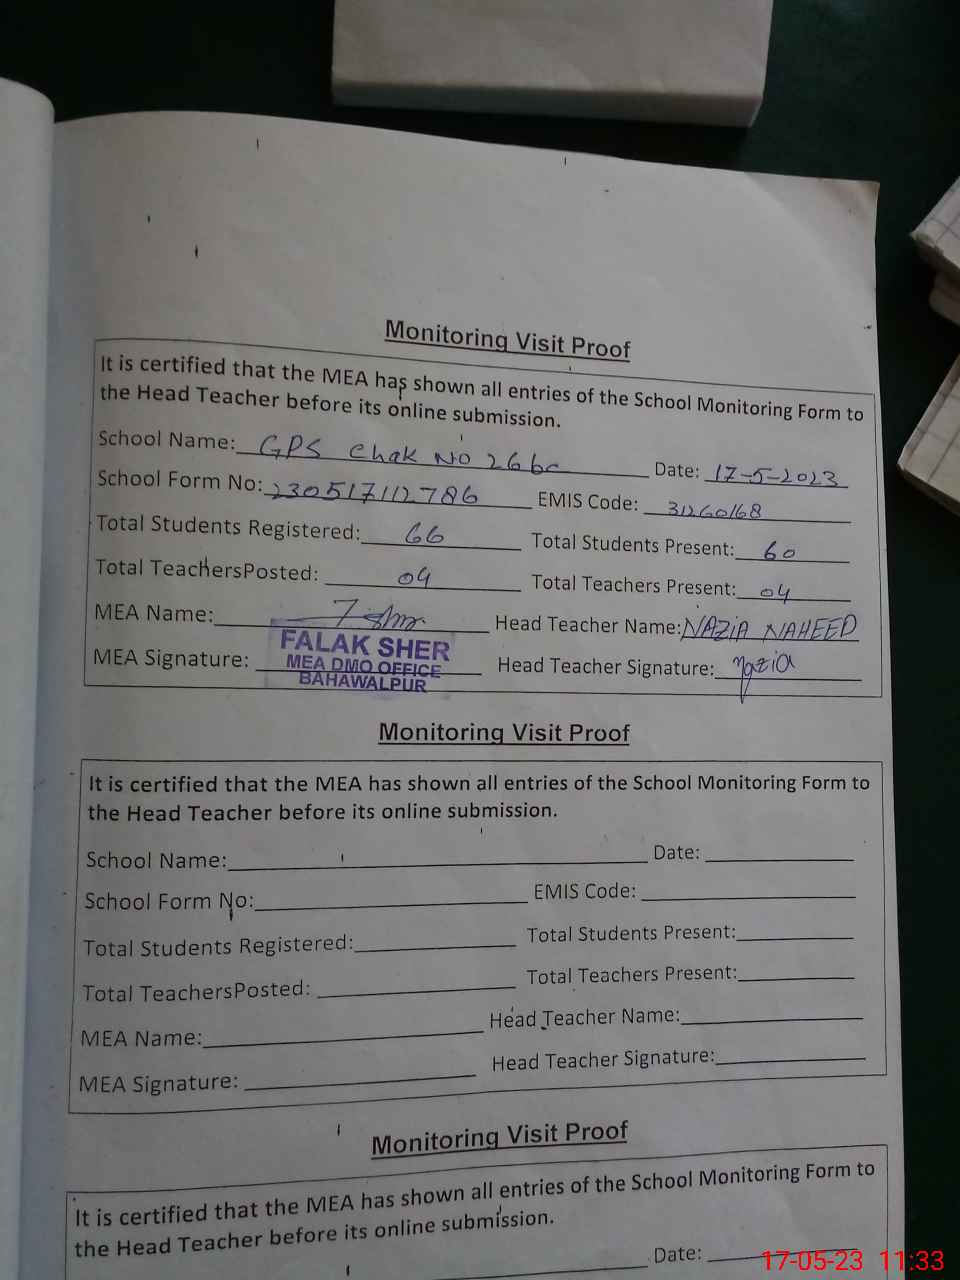 Monitoring Visit Proof
It is certified that the MEA has shown all entries of the School Monitoring Form to
the Head Teacher before its online submission.
School Name: GPS Chak NO 26 bc Date: 17-5-2023
School Form No: 230517112786 EMIS Code: 31260168
Total Students Registered: 66 Total Students Present: 60
Total TeachersPosted: 04 Total Teachers Present: 04
MEA Name: Head Teacher Name: NAZIA NAHEED
FALAK SHER
MEA Signature: MEA DMO OFFICE Head Teacher Signature: Nazia
BAHAWALPUR
Monitoring Visit Proof
It is certified that the MEA has shown all entries of the School Monitoring Form to
the Head Teacher before its online submission.
School Name: Date:
School Form No: EMIS Code:
Total Students Registered: Total Students Present:
Total TeachersPosted: Total Teachers Present:
MEA Name: Head Teacher Name:
MEA Signature: Head Teacher Signature:
Monitoring Visit Proof
It is certified that the MEA has shown all entries of the School Monitoring Form to
the Head Teacher before its online submission.
Date:
17-05-23 11:33